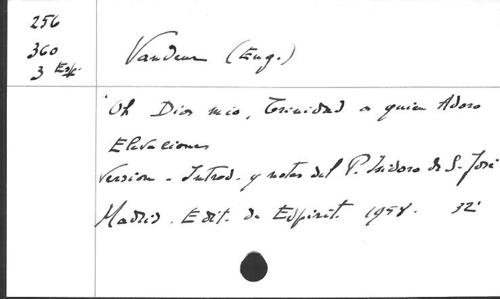 256
360
3 Esp.
Vandeur (Eug.)
'Oh Dios mio, Trinidad a quien Adoro
Elevaciones
Version - Introd. y notas del P. Isidoro de S. José
Madrid. Edit. de Espirit. 1958. 32'